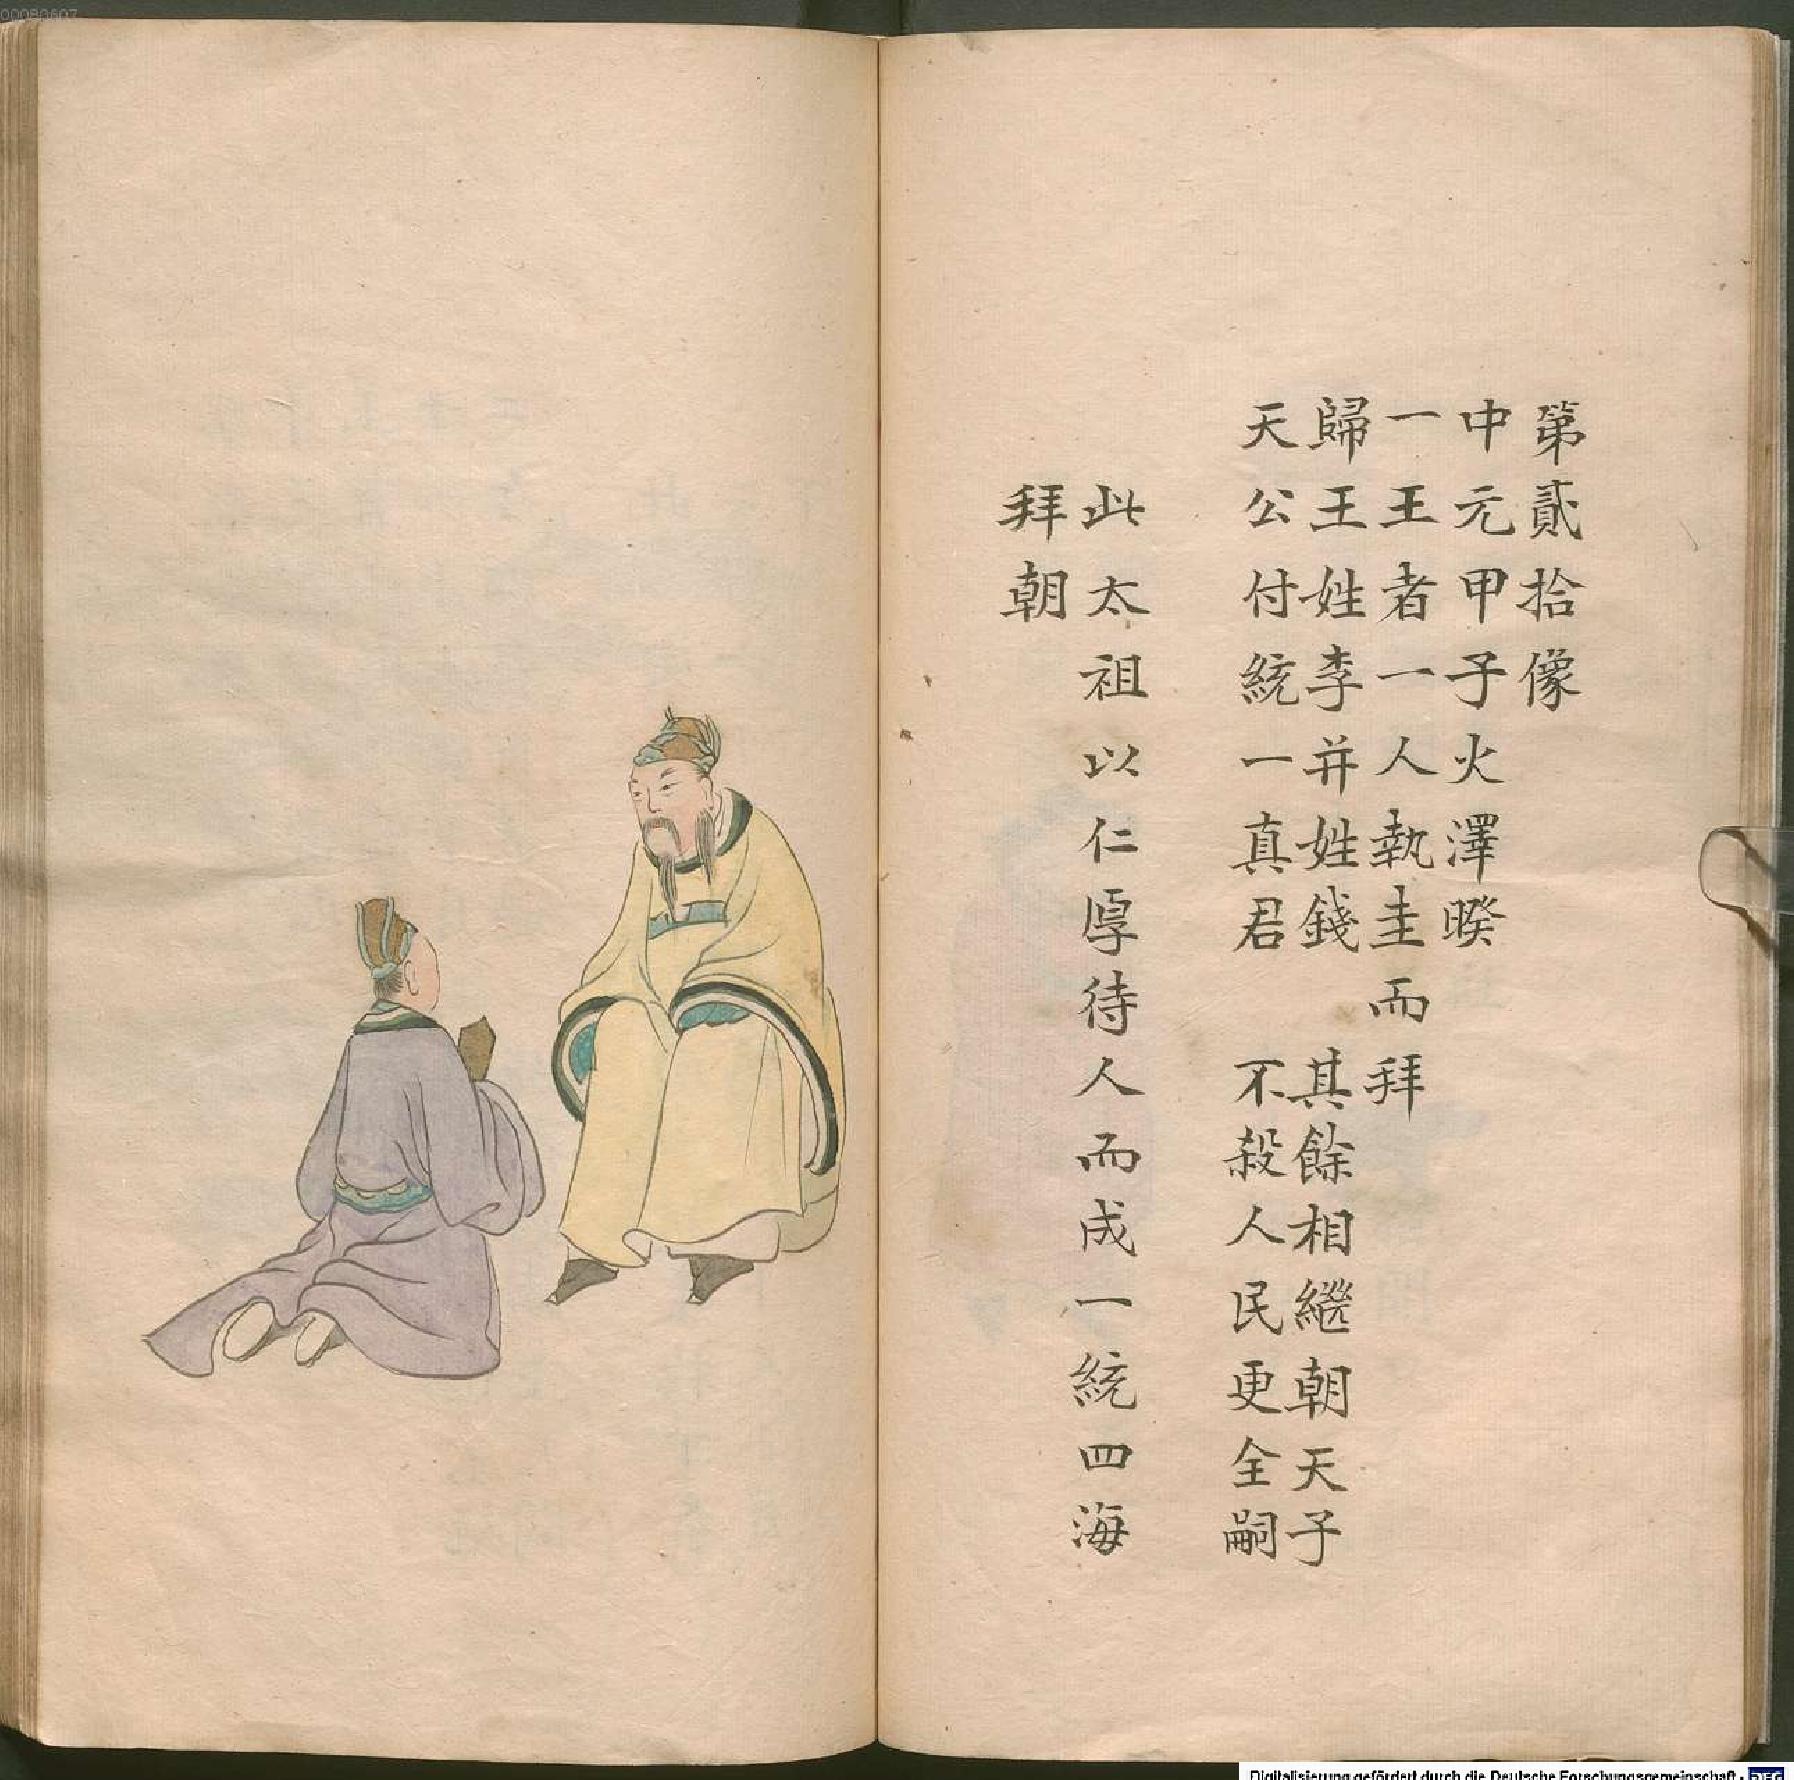 第貳拾像
中元甲子火澤暌
一王者一人執圭而拜
歸王姓李并姓錢 其餘相繼朝天子
天公付統一真君 不殺人民更全嗣
此太祖以仁厚待人而成一統四海
拜朝
00080607
Digitalisierung gefördert durch die Deutsche Forschungsgemeinschaft - DFG